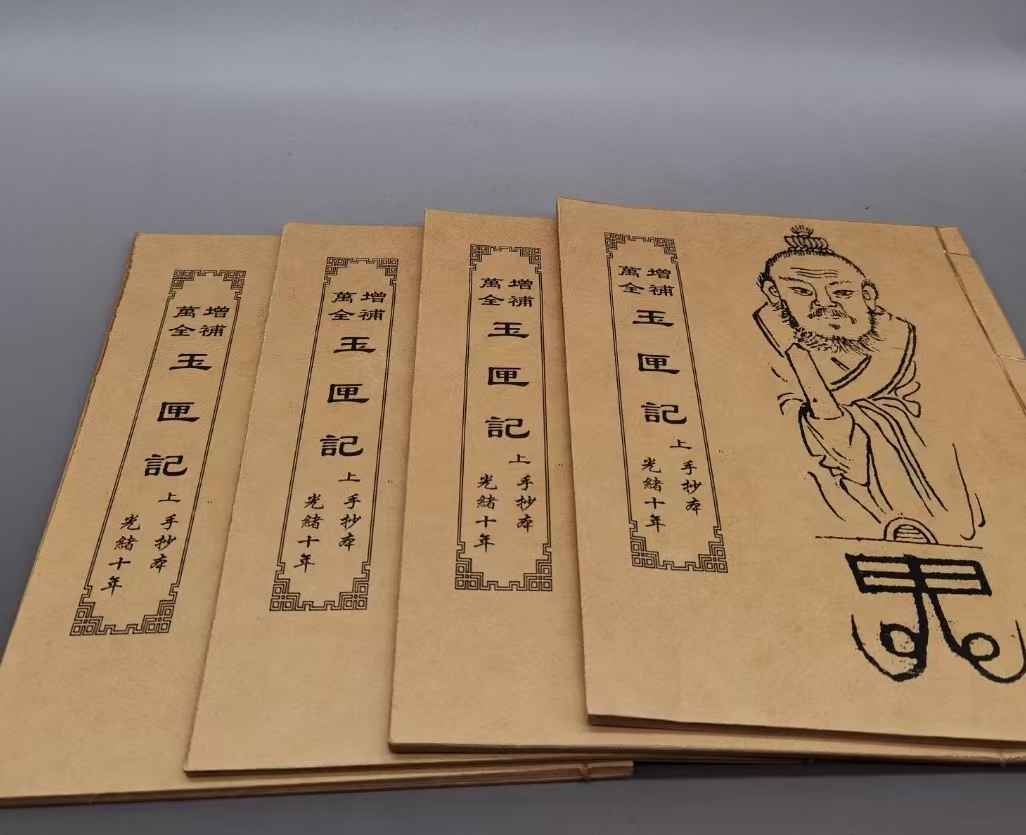 增補
萬全
玉匣記
上
手抄本
光緒十年
增補
萬全
玉匣記
上
手抄本
光緒十年
增補
萬全
玉匣記
上
手抄本
光緒十年
增補
萬全
玉匣記
上
手抄本
光緒十年